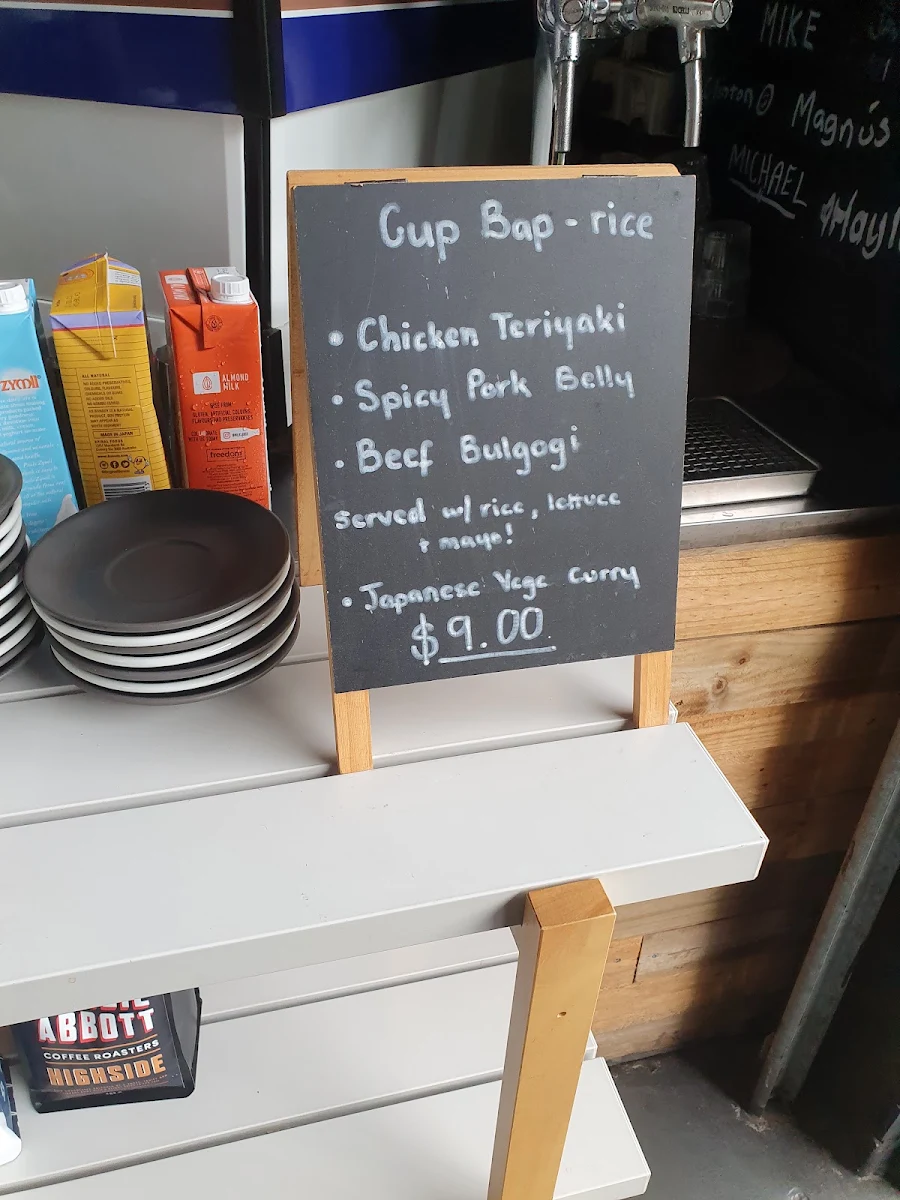 MIKE
Magnús
MICHAEL
Cup Bap - rice
• Chicken Teriyaki
• Spicy Pork Belly
• Beef Bulgogi
served w/ rice, lettuce
+ mayo!
• Japanese Vege Curry
$9.00
ZYMIL
ALL NATURAL
MADE IN JAPAN
ALMOND
MILK
freedom
ABBOTT
COFFEE ROASTERS
HIGHSIDE